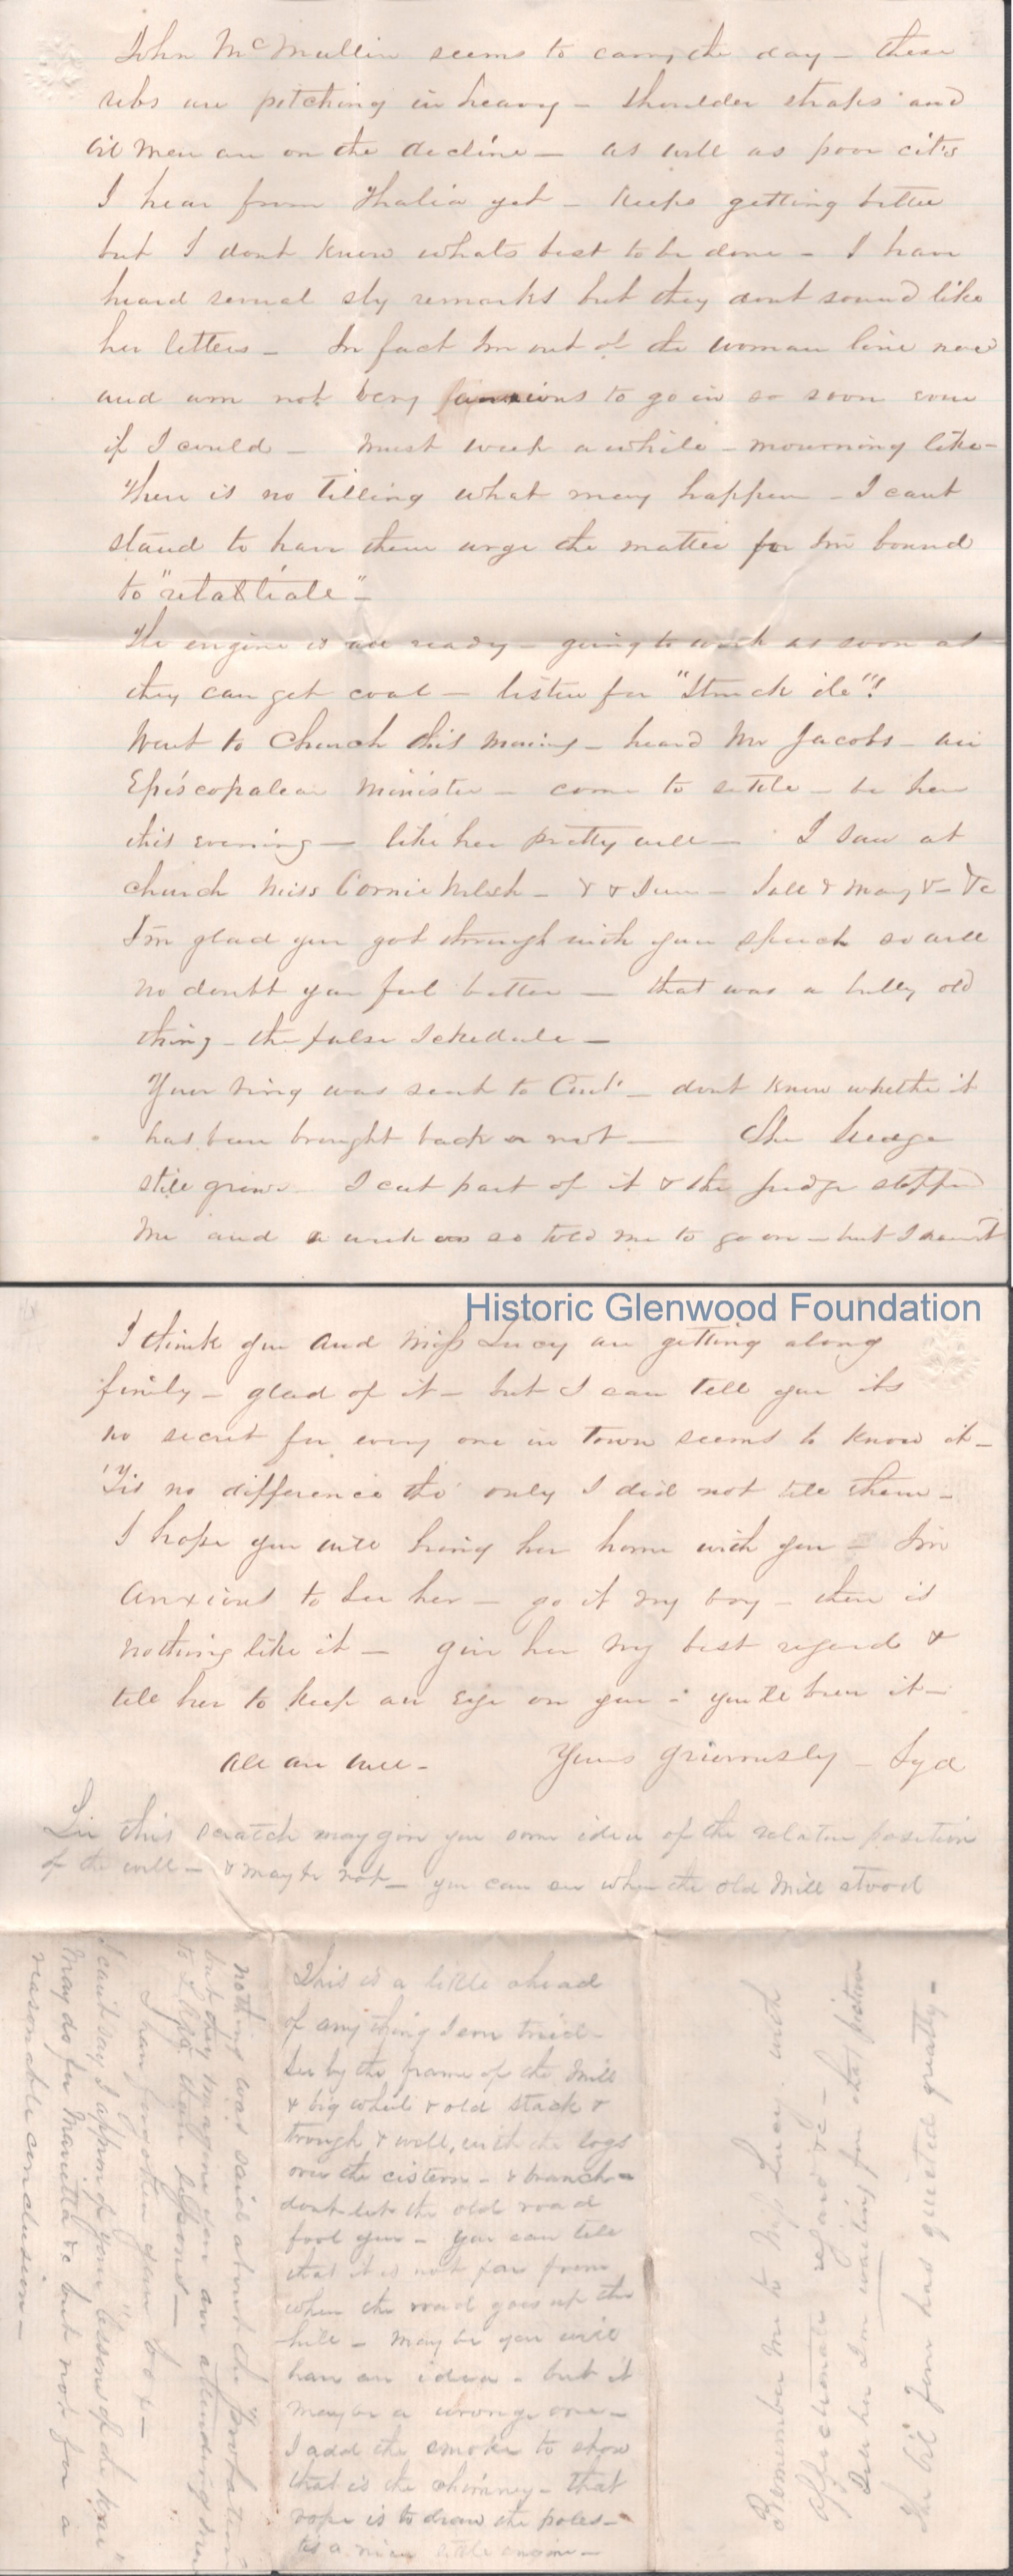 John McMullin seems to carry the day – these
rebs are pitching in heavy – shoulder straps and
oil men are on the decline – as well as poor cit's
I hear from Thalia yet – keeps getting better
but I dont know whats best to be done – I have
heard several sly remarks but they dont sound like
her letters – In fact Im out of the woman line now
and am not very anxious to go in so soon even
if I could – Must weep awhile – mourning like –
There is no telling what may happen – I cant
stand to have them urge the matter for Im bound
to "retaltiate" –
The engine is all ready – going to work as soon as
they can get coal – listen for "Struck ile"!
Went to Church this morning – heard Mr Jacobs – an
Episcopalean Minister – come to settle – be here
this evening – like her pretty well – I saw at
church Miss Cornie Welsh – & & – Sall & Mary & – &c
I'm glad you got through with your speech so well
No doubt you feel better – that was a bully old
thing – the false schedule –
Your ring was sent to Cint' – dont know whether it
has been brought back or not – The hedge
still grows – I cut part of it & the Judge stopped
me and a week or so told me to go on – but I havent
Historic Glenwood Foundation
I think you and Miss Lucy are getting along
finely – glad of it – but I can tell you its
no secret for every one in town seems to know it –
'Tis no difference tho' only I did not tell them –
I hope you will bring her home with you – Im
anxious to see her – go it my boy – there is
nothing like it – give her my best regard &
tell her to keep an eye on you – you'll bear it –
All are well – Yours grievously – Syd
Liv this scratch may give you some idea of the relative position
of the well – & maybe not – you can see where the old Mill stood
This is a little ahead
of anything I ever tried –
See by the frame of the Mill
& big wheel & old stack &
trough & well, with the logs
over the cistern – & branch –
dont let the old road
fool you – You can tell
that it is not far from
where the road goes up the
hill – May be you will
have an idea – but it
may be a wrong one –
I add the smoke to show
that is the chimney – that
rope is to draw the poles –
tis a nice little engine –
nothing was said about the "probation"
but they imagine you are attending
to I hope them lessons –
I have forgotten your box –
I cant say I approve of your "lessons of de hour"
May do for Marietta &c but not for a
reasonable conclusion –
Remember me to Miss Lucy with
affectionate regard &c –
Tell her I'm waiting for that picture
The Oil fever has quieted greatly –